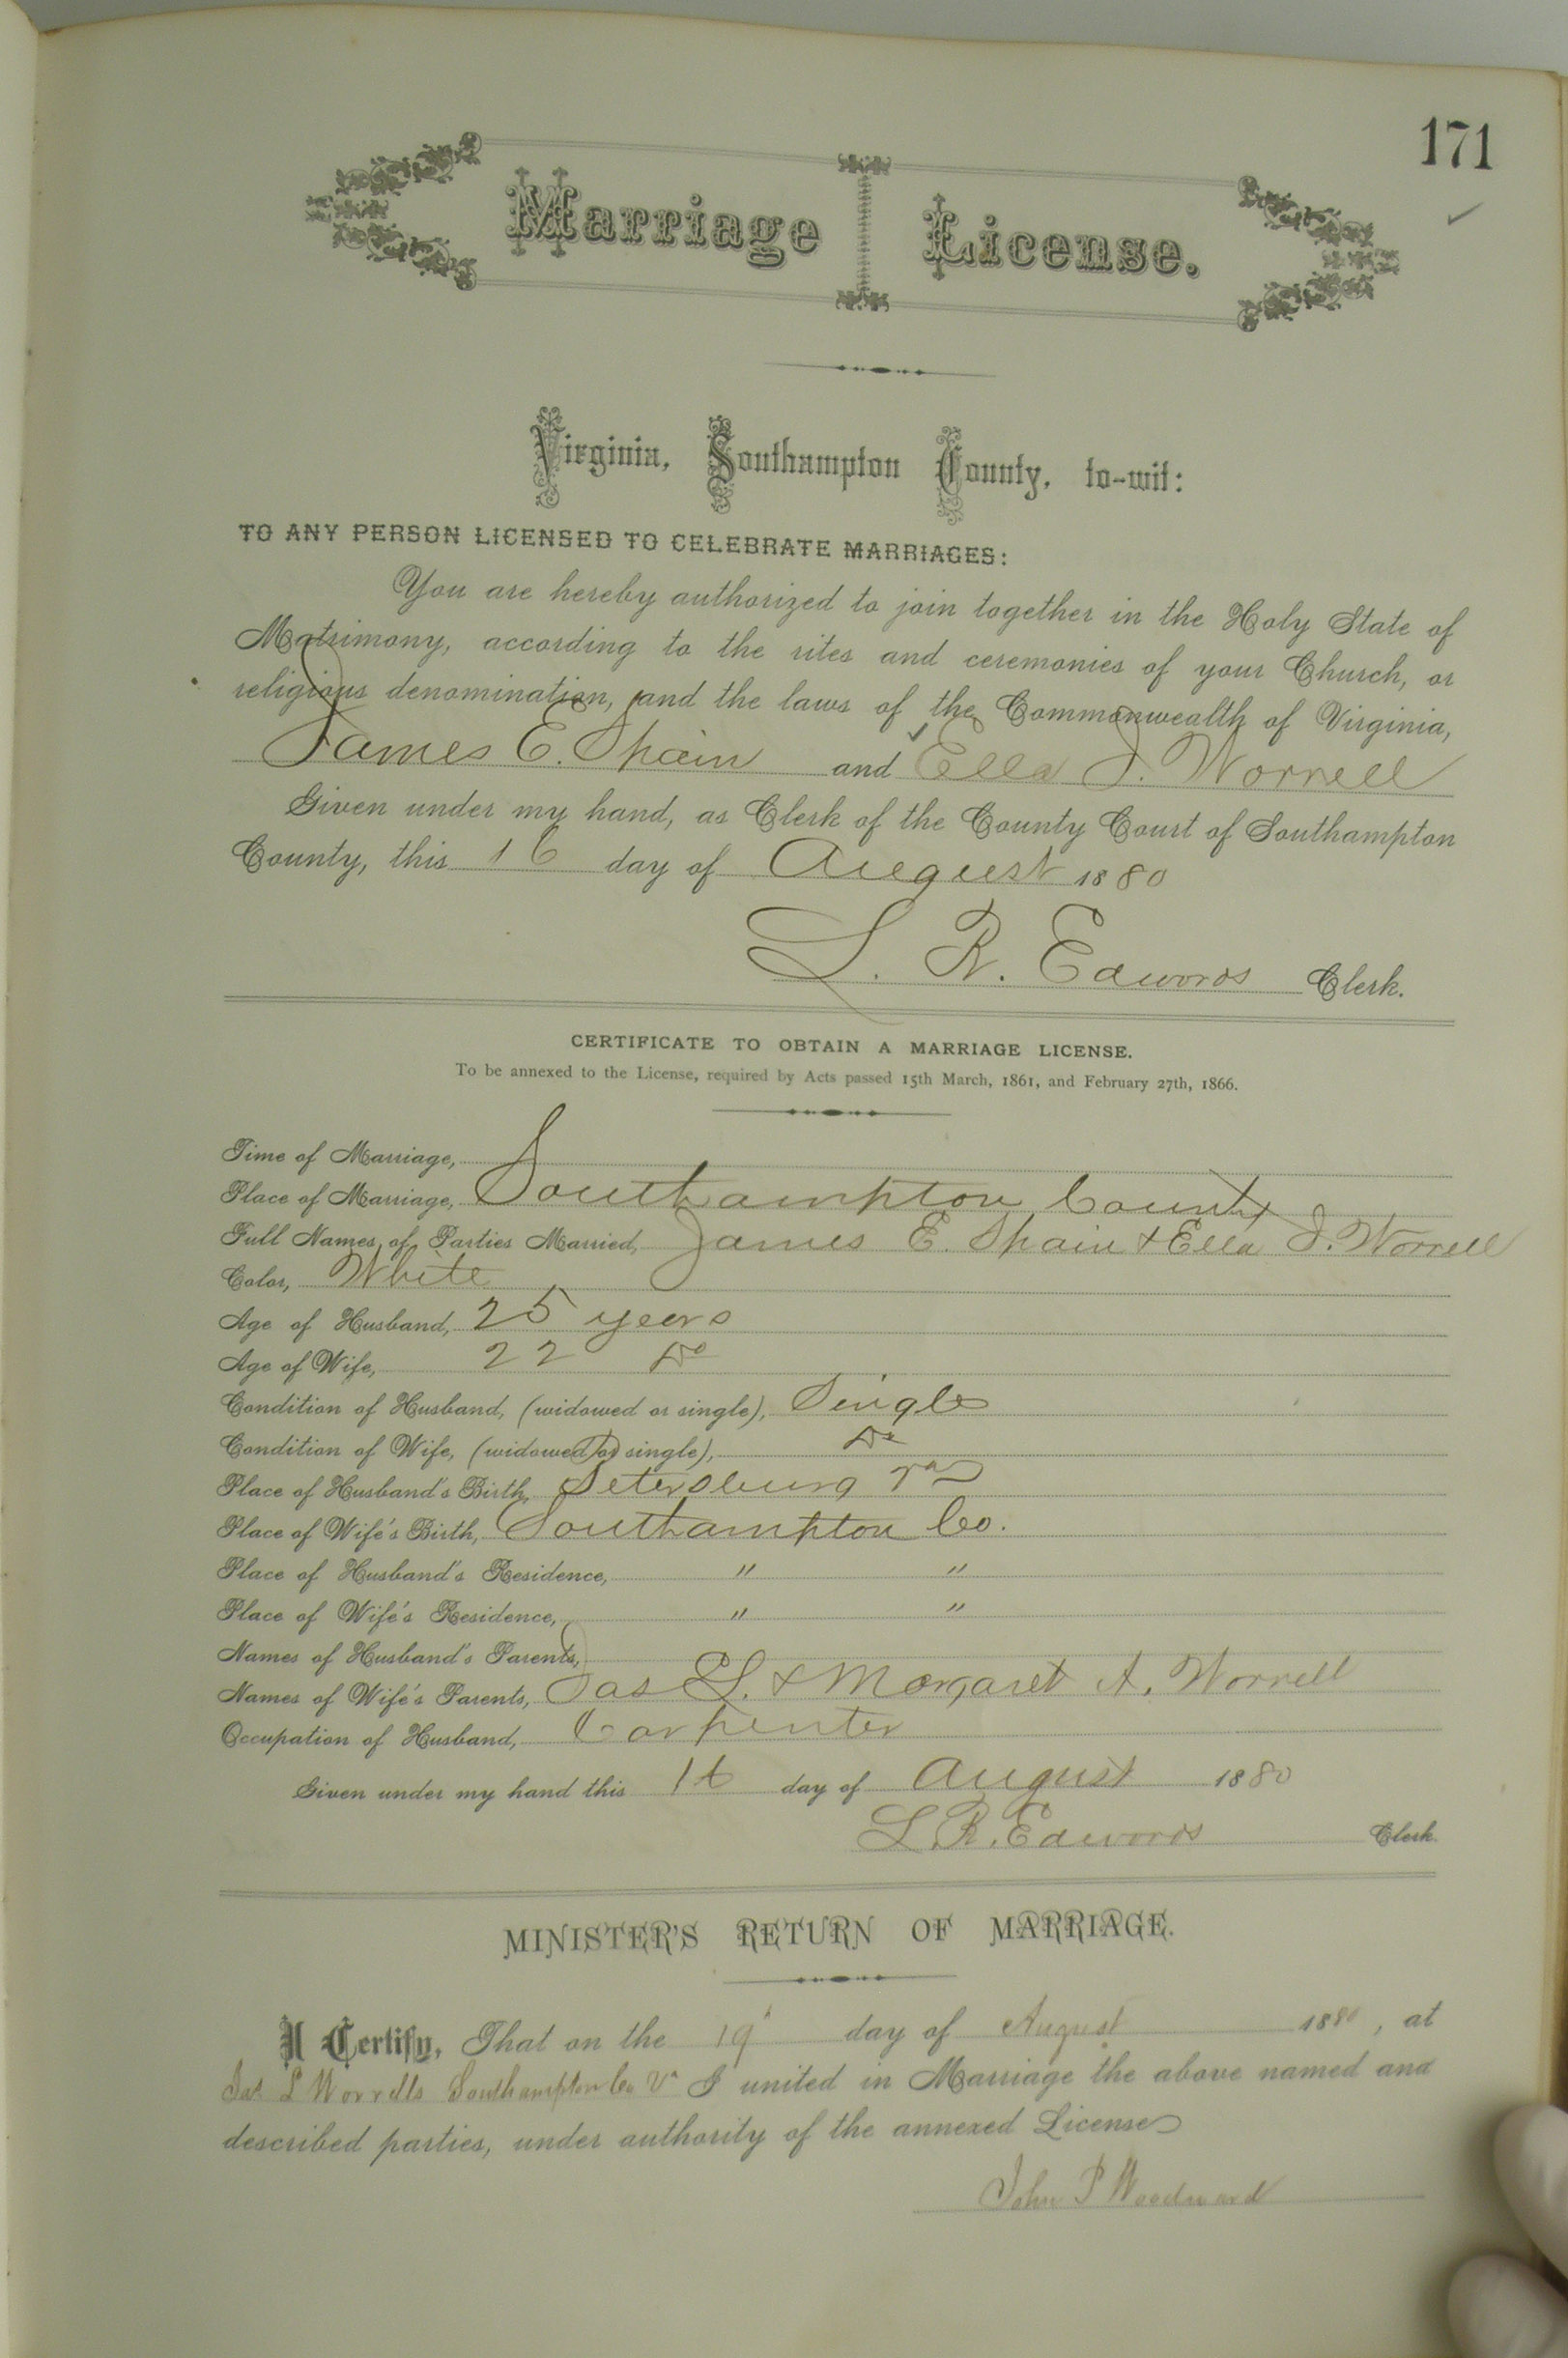 171
Marriage License.
Virginia, Southampton County, to-wit:
TO ANY PERSON LICENSED TO CELEBRATE MARRIAGES:
You are hereby authorized to join together in the Holy State of
Matrimony, according to the rites and ceremonies of your Church, or
religious denomination, and the laws of the Commonwealth of Virginia,
James E. Spain and Ella J. Worrell
Given under my hand, as Clerk of the County Court of Southampton
County, this 16 day of August 1880
L. R. Edwards Clerk.
CERTIFICATE TO OBTAIN A MARRIAGE LICENSE.
To be annexed to the License, required by Acts passed 15th March, 1861, and February 27th, 1866.
Time of Marriage,
Place of Marriage, Southampton County
Full Names of Parties Married, James E. Spain & Ella J. Worrell
Color, White
Age of Husband, 25 years
Age of Wife, 22 Do
Condition of Husband, (widowed or single), Single
Condition of Wife, (widowed or single), Do
Place of Husband's Birth, Petersburg Va
Place of Wife's Birth, Southampton Co.
Place of Husband's Residence, " "
Place of Wife's Residence, " "
Names of Husband's Parents,
Names of Wife's Parents, Jas L. & Margaret A. Worrell
Occupation of Husband, Carpenter
Given under my hand this 16 day of August 1880
L. R. Edwards Clerk
MINISTER'S RETURN OF MARRIAGE.
I Certify, That on the 19 day of August 1880, at
Jas L Worrells Southampton Co Va I united in Marriage the above named and
described parties, under authority of the annexed License
John P Woodward